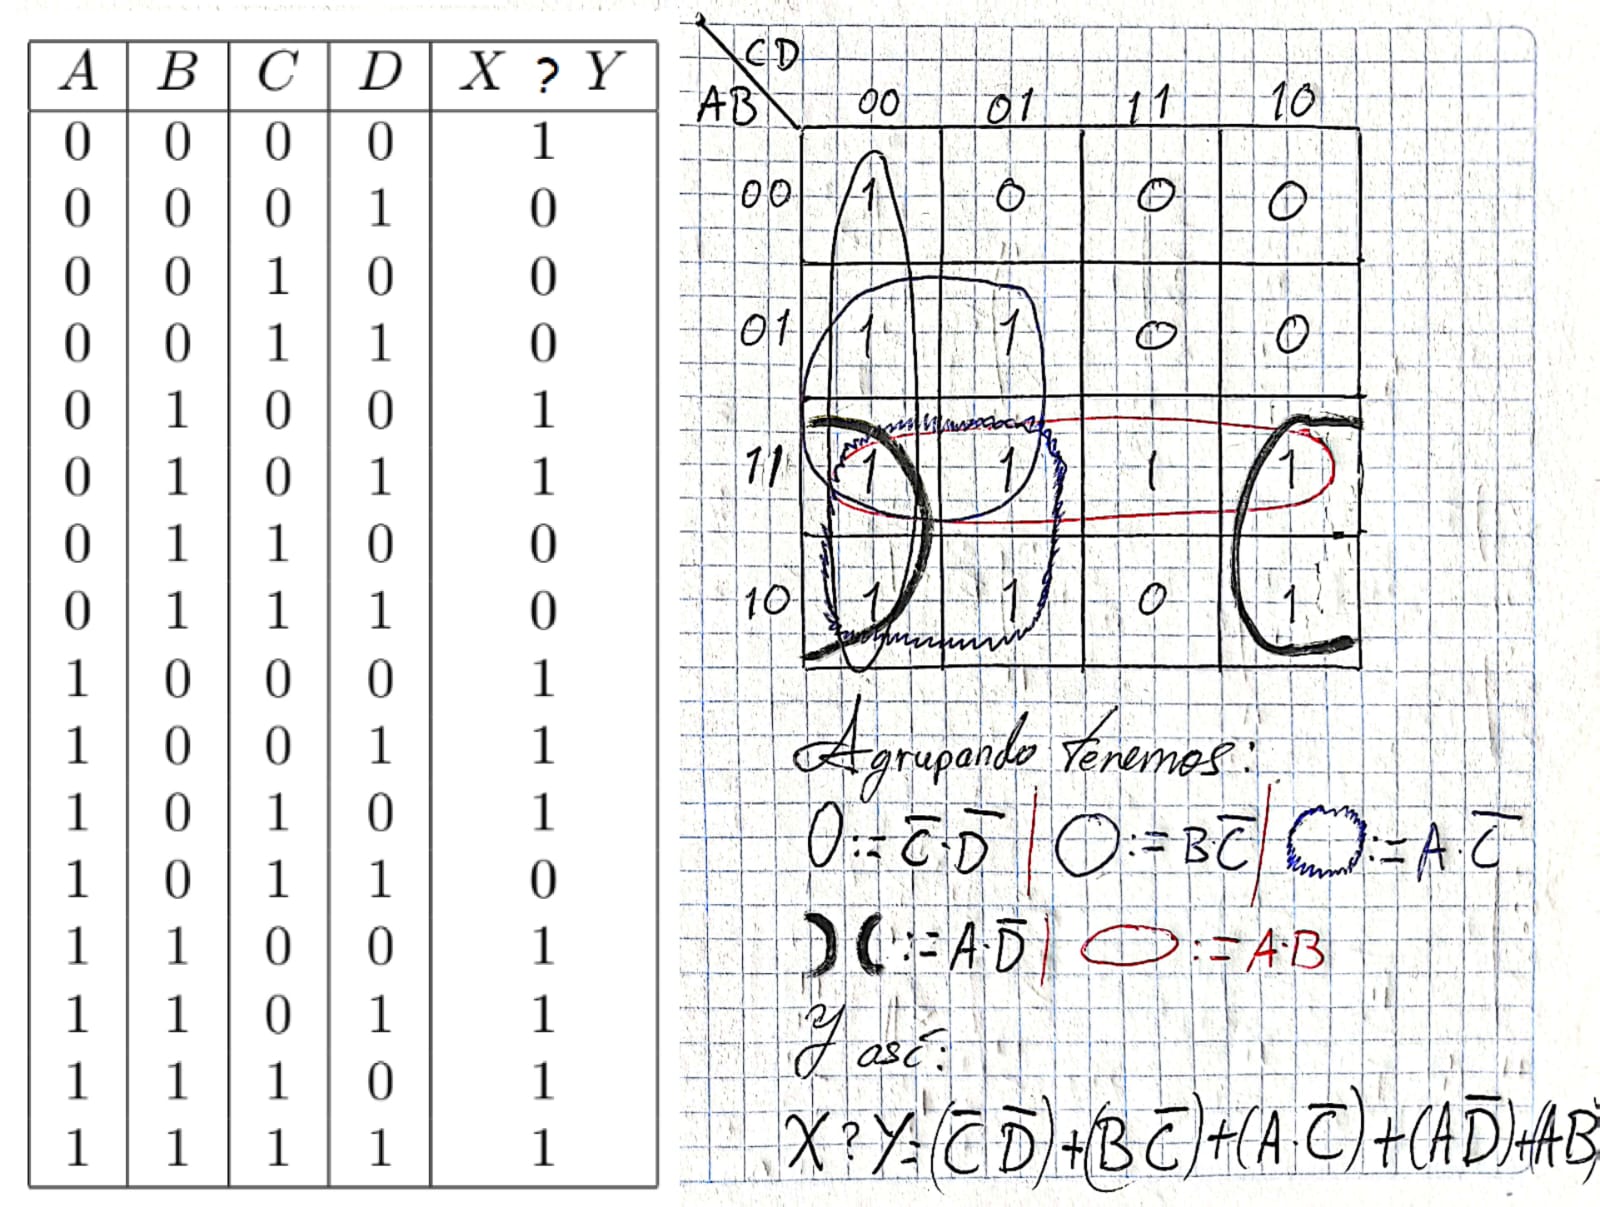 A B C D X ? Y
0 0 0 0 1
0 0 0 1 0
0 0 1 0 0
0 0 1 1 0
0 1 0 0 1
0 1 0 1 1
0 1 1 0 0
0 1 1 1 0
1 0 0 0 1
1 0 0 1 1
1 0 1 0 1
1 0 1 1 0
1 1 0 0 1
1 1 0 1 1
1 1 1 0 1
1 1 1 1 1
CD
AB 00 01 11 10
00 1 0 0 0
01 1 1 0 0
11 1 1 1 1
10 1 1 0 1
Agrupando tenemos:
:= C̅·D̅ | := BC̅ | := A·C̅
:= A·D̅ | := A·B
Y así:
X?Y=(C̅ D̅)+(B C̅)+(A·C̅)+(AD̅)+(AB)